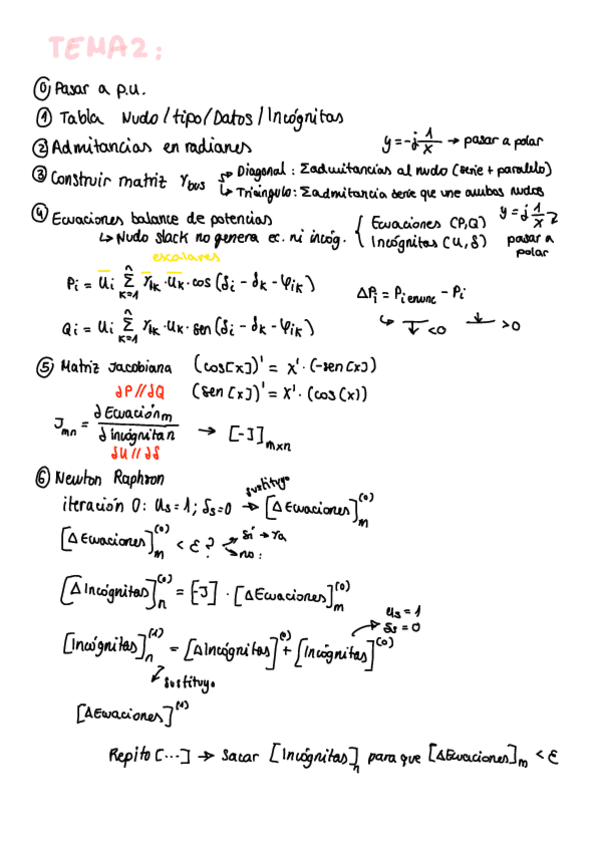 TEMA2:
⓪ Pasar a p.u.
① Tabla Nudo/tipo/Datos/Incógnitas
② Admitancias en radianes y=-j 1/x → pasar a polar
③ Construir matriz Ybus
↳ Diagonal: Σadmitancias al nudo (serie + paralelo)
↳ Triángulo: Σadmitancia serie que une ambos nudos
④ Ecuaciones balance de potencias { Ecuaciones (P,Q) y=j 1/x
↳ Nudo slack no genera ec. ni incóg. { Incógnitas (U,δ) pasar a polar
escalares
Pi = Ui Σ(K=1, n) Yik·Uk·cos(δi - δk - φik) ΔPi = Pi enunc - Pi
↳ <0 >0
Qi = Ui Σ(K=1, n) Yik·Uk·sen(δi - δk - φik)
⑤ Matriz Jacobiana (cos[x])' = x'·(-sen[x])
∂P//∂Q (sen[x])' = x'·(cos(x))
Jmn = ∂Ecuaciónm / ∂incógnitan → [-J]mxn
∂U//∂δ
⑥ Newton Raphson
iteración 0: Us=1; δs=0 → sustituyo [ΔEcuaciones]m(0)
[ΔEcuaciones]m(0) < ε? Sí → Ya
no:
[ΔIncógnitas]n(0) = [-J]·[ΔEcuaciones]m(0)
Us=1
δs=0
[Incógnitas]n(1) = [ΔIncógnitas](0) + [Incógnitas](0)
sustituyo
[ΔEcuaciones](1)
Repito [...] → Sacar [Incógnitas]n para que [ΔEcuaciones]m < ε